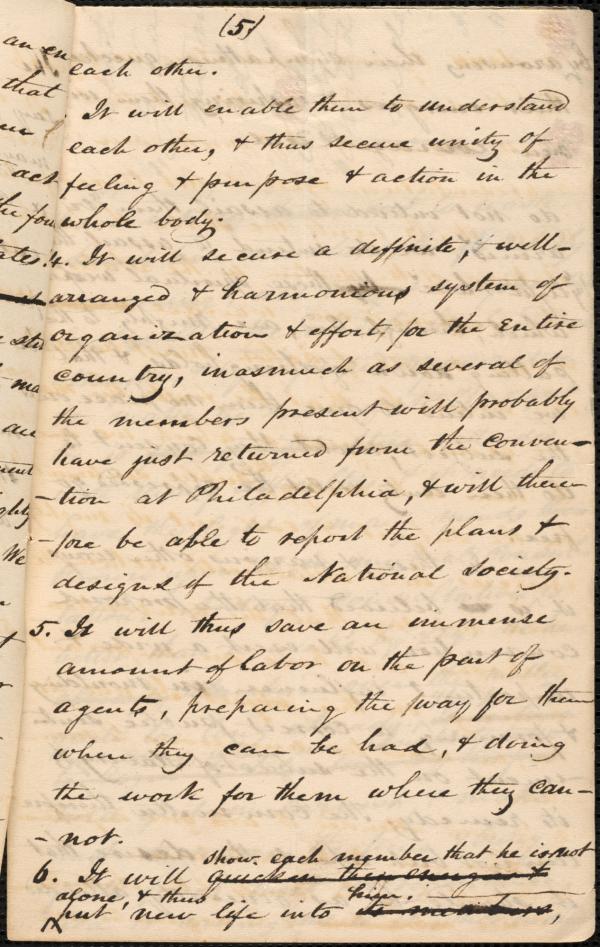 (5)
each other.
It will enable them to understand
each other, & thus secure unity of
feeling & purpose & action in the
whole body.
4. It will secure a definite, well-
arranged & harmonious system of
organization & effort, for the entire
country, inasmuch as several of
the members present will probably
have just returned from the conven-
-tion at Philadelphia, & will there-
-fore be able to report the plans &
designs of the National Society.
5. It will thus save an immense
amount of labor on the part of
agents, preparing the way for them
when they can be had, & doing
the work for them where they can-
-not.
show each member that he is not
6. It will quicken their energies &
alone, & thus him.
put new life into its members,